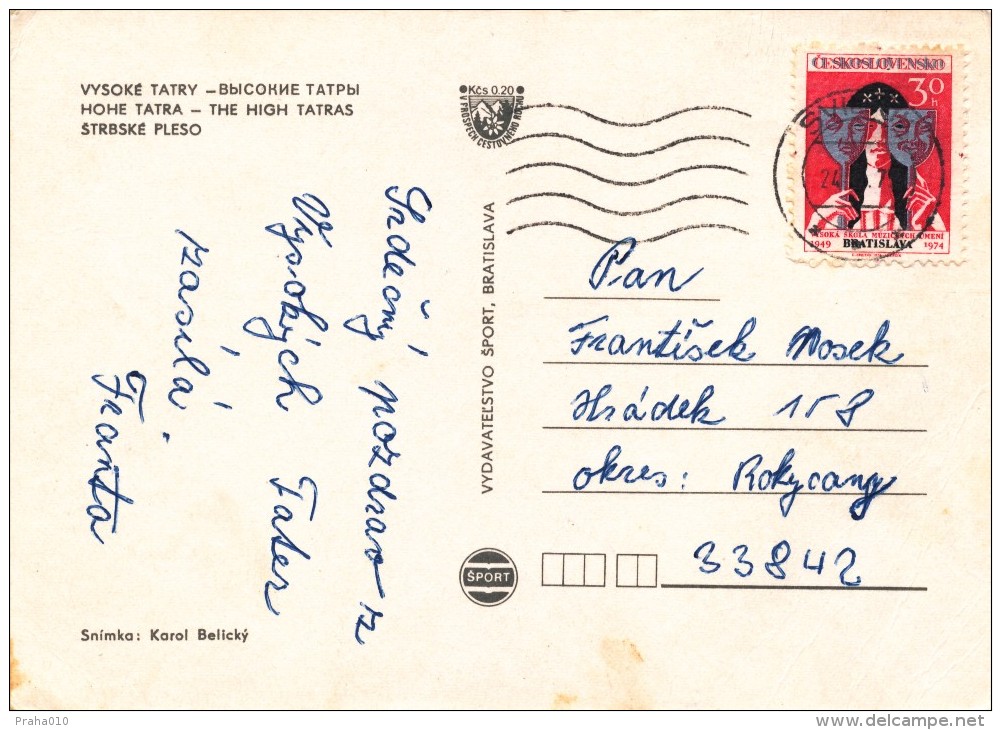 VYSOKÉ TATRY – ВЫСОКИЕ ТАТРЫ
HOHE TATRA – THE HIGH TATRAS
ŠTRBSKÉ PLESO
Kčs 0.20
V PROSPECH CESTOVNÉHO RUCHU
ČESKOSLOVENSKO
30 h
VYSOKÁ ŠKOLA MÚZICKÝCH UMENÍ
1949 BRATISLAVA 1974
24
Srdečný pozdrav z
Vysokých Tater
zasílá.
Franta
VYDAVATEĽSTVO ŠPORT, BRATISLAVA
Pan
František Nosek
Hrádek 158
okres: Rokycany
33842
ŠPORT
Snímka: Karol Belický
Praha010
delcampe.net